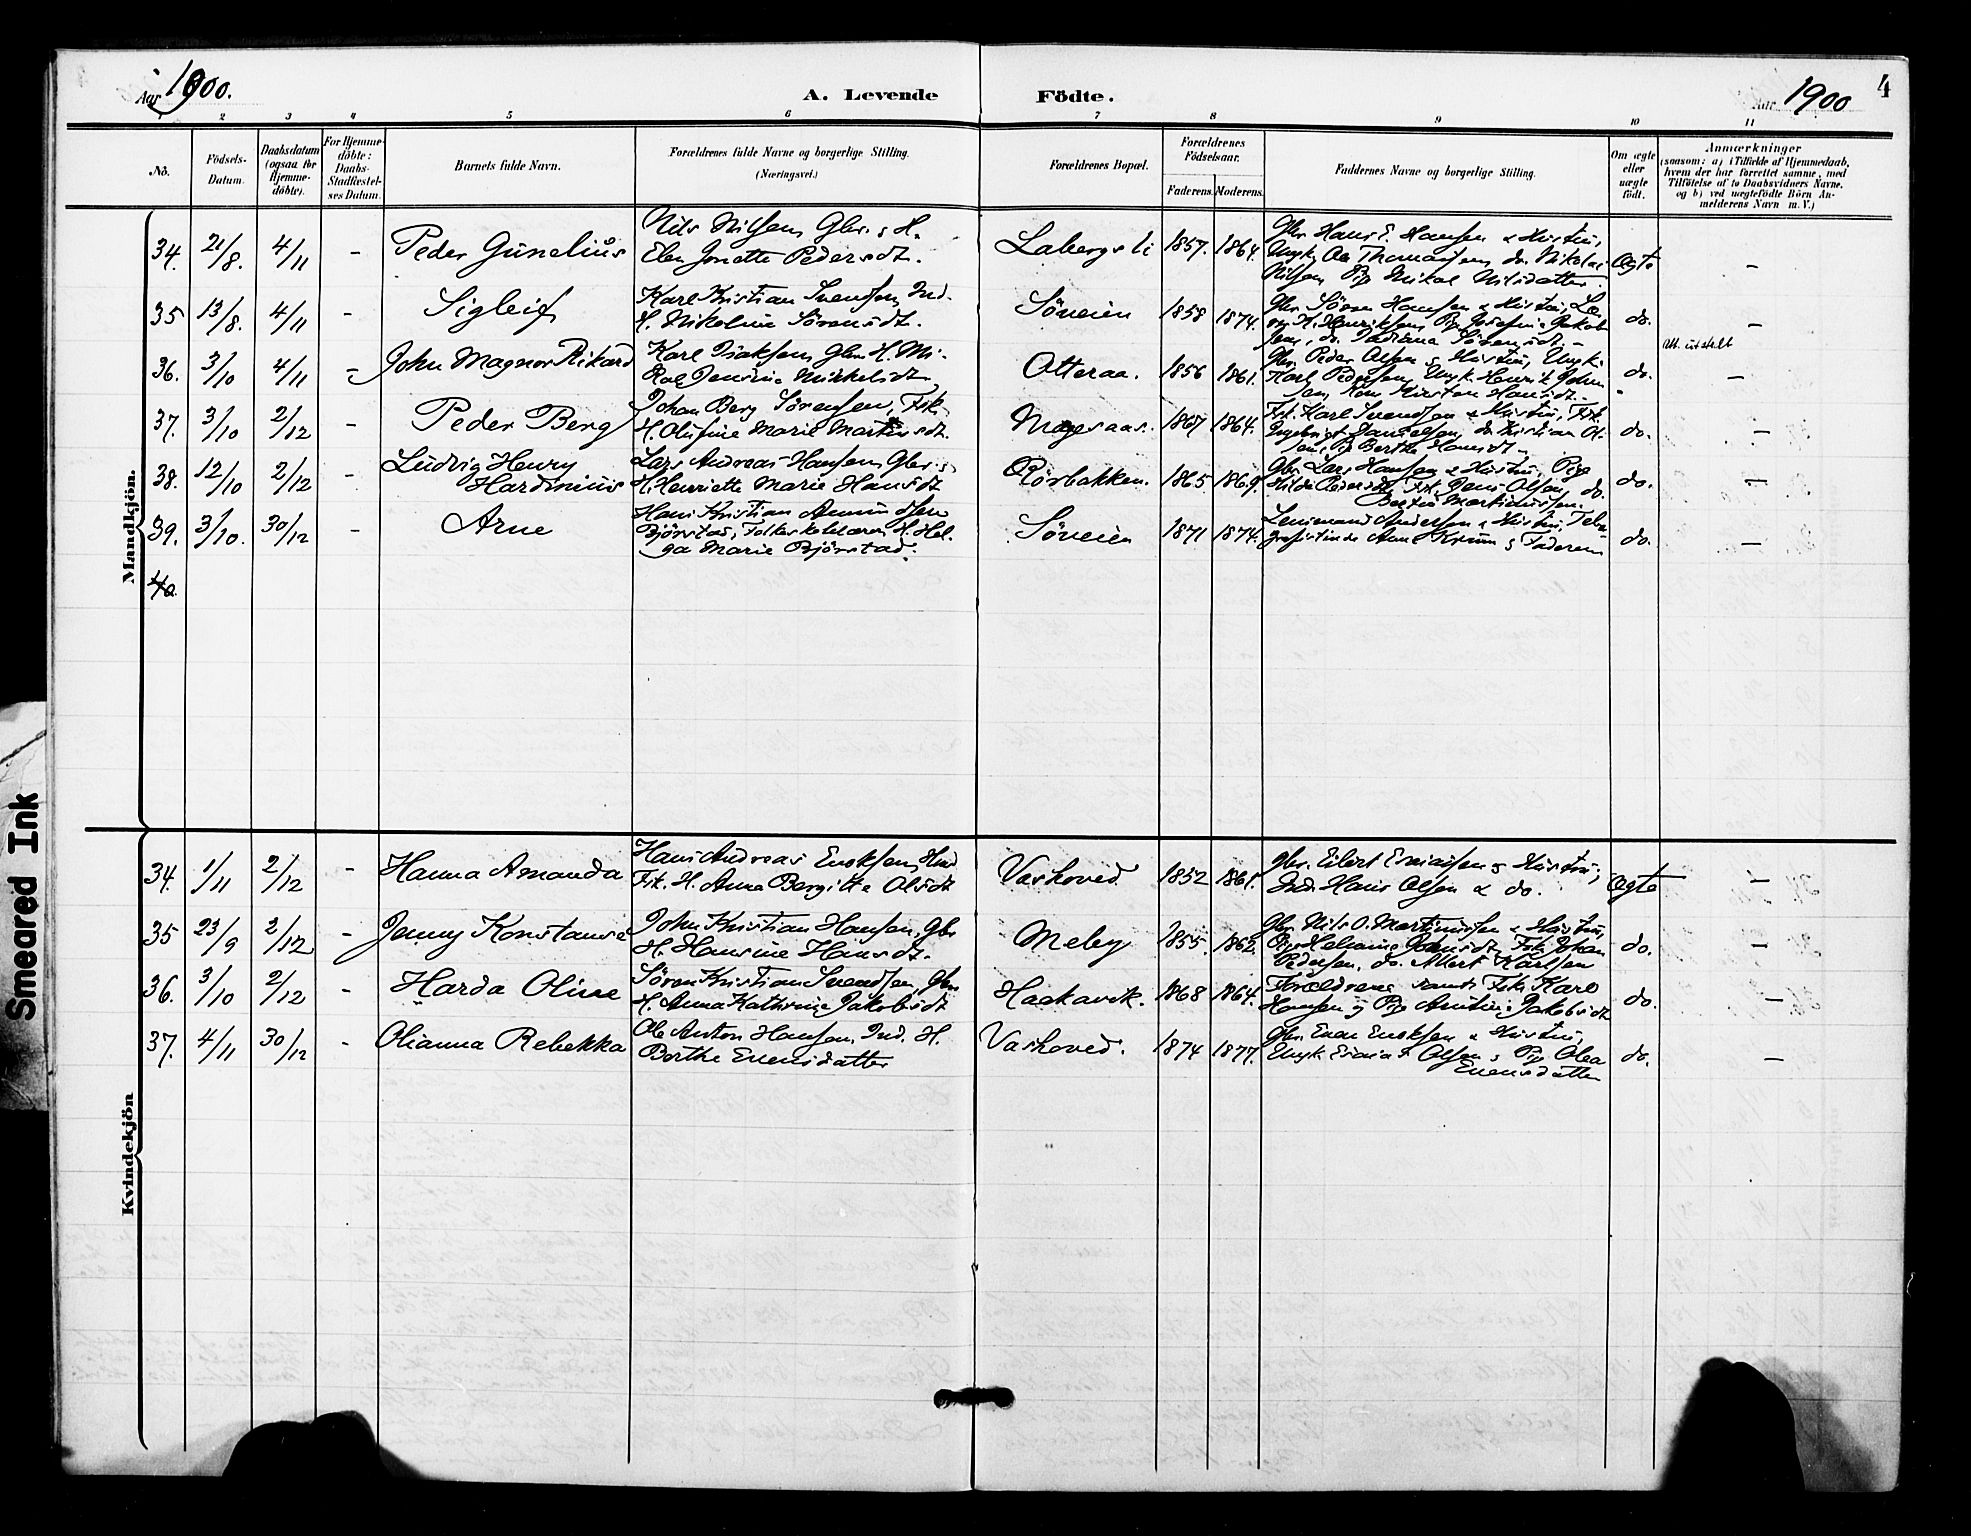 Aar 1900.
A. Levende Födte.
Aar 1900
4
1 2 3 4 5 6 7 8 9 10 11
No.
Födsels-Datum.
Daabsdatum (ogsaa for Hjemme-döbte).
For Hjemme-döbte: Daabs-Stadfæstel-ses Datum.
Barnets fulde Navn.
Forældrenes fulde Navne og borgerlige Stilling.
(Næringsvei.)
Forældrenes Bopæl.
Forældrenes Födselsaar.
Faderens. Moderens.
Faddernes Navne og borgerlige Stilling.
Om ægte eller uægte födt.
Anmærkninger
(saasom: a) i Tilfælde af Hjemmedaab,
hvem der har forrettet samme, med
Tilföielse af to Daabsvidners Navne,
og b) ved uægtefödte Börn An-
melderens Navn m. V.)
Mandkjön.
34. 21/8. 4/11 - Peder Gunelius
Nils Nilsen Gbr. & H.
Elen Jonette Pedersdt.
Labergsli 1857. 1864.
Gbr. Hans E. Hansen & Hustru,
Ungk. Ole Thomassen, do. Nikolai
Nilsen, Pige Mikal Nilsdatter
Ægte -
35 13/8. 4/11 - Sigleif
Karl Kristian Svendsen, Ind.
H. Nikoline Sörensdt.
Söveien 1858 1874.
Gbr. Sören Hansen & Hustru,
do. -
Att. utstelt
36. 3/10 4/11 - John Magnor Rikard
Karl Isaksen Gbr. H. Mi-
Mikkelsdt
Otteraa. 1856 1861.
Gbr. Peder Olsen & Hustru, Ungk.
Karl Pedersen, Ungk. Henrik John
sen, Kone Kirsten Hansdt.
do. -
37. 3/10 2/12 - Peder Berg
Johan Berg Sörensen, Fisk.
H. Olufine Marie Martinsdt.
1867 1864.
Fsk. Karl Svendsen & Hustru, Fsk.
Ingebrigt Danielsen, do. Kristian Ol-
sen, Pig. Berthe Hansdt.
do. -
38. 12/10 2/12 - Ludvig Henry
Hardinius
Lars Andreas Hansen, Gbr. &
H. Henriette Marie Hansdt
Rörbakken. 1865 1869.
Gbr. Lars Hansen & Hustru, Pige
Hilda Pedersdt, Fsk. Jens Olsen do.
Martinussen.
do. -
39. 3/10. 30/12 - Arne
Hans Kristian Amundsen
Björnstad, Folkeskolelærer, H. Hel-
ga Marie Björnstad.
Söveien 1871 1874.
Lensmand Andersen & Hustru, Tele-
grafistinde Anne Krum & Faderen
do. -
40.
Kvindekjön
34. 1/11 2/12 - Hanna Amanda
Hans Andreas Enoksen, Ind
Fsk. H. Anna Bergitte Olsdt
Vashoved 1852 1861.
Gbr. Eilert Esaiassen & Hustru,
Ind. Hans Olsen & do.
Ægte -
35 23/9 2/12 - Jenny Konstanse
John Kristian Hansen, Gbr
H. Hansine Hansdt.
Meby 1855. 1862.
Gbr. Nils O. Martinussen & Hustru,
Pige Helsine Hansdt, Fsk. Johan
Pedersen, do. Albert Karlsen
do. -
36. 3/10 2/12 - Harda Oline
Sören Kristian Svendsen, Gbr
H. Anna Kathrine Jakobsdt
Haakavik. 1868 1864.
Forældrene samt Fsk. Karl
Hansen og Pige Antine Jakobsdt
do. -
37. 4/11 30/12 - Olianna Rebekka
Ole Anton Hansen, Ind. H.
Berthe Evensdatter
Vashoved. 1874 1877.
Gbr. Even Enoksen & Hustru,
Ungk. Esaias Olsen & Pige Olea
Evensdatter
do. -
Smeared Ink